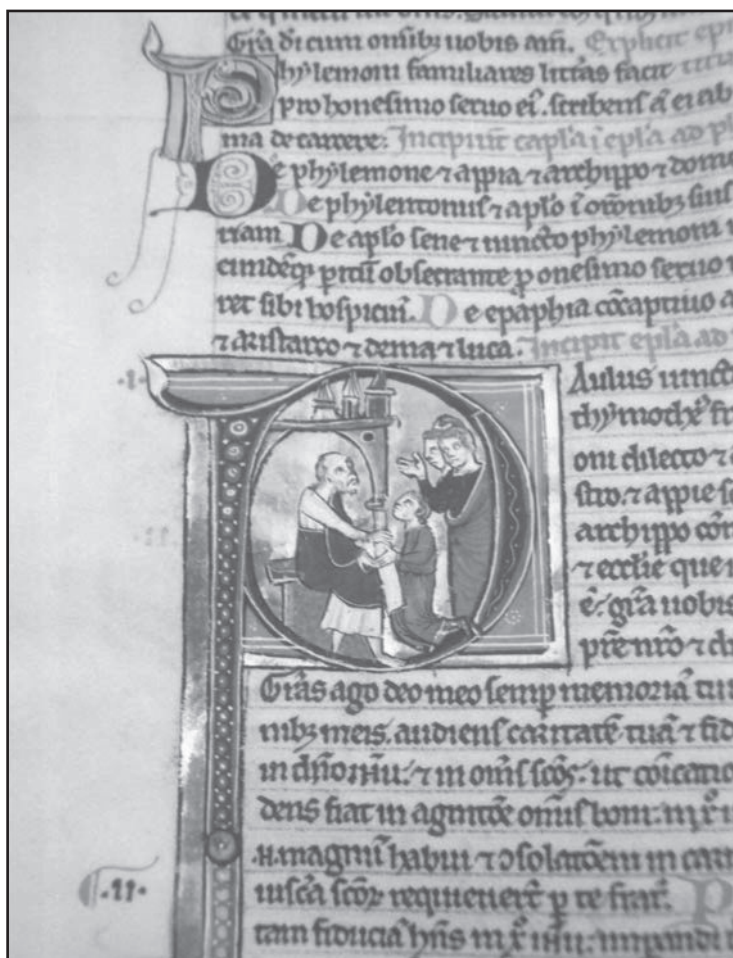 Grã di cum omibꝫ uobis am̃. Explicit
Phylemoni familiares litt̃as facit
pro honesimo seruo eı̃. scribens ã ei ab
ma de carcere: Incipiũt capl̃a ı̃ epl̃a ad
De phylemone ⁊ appia ⁊ archippo ⁊
De phylemonis ⁊ apl̃o ı̃ or̃onibꝫ
riam De apl̃o sene ⁊ uincto phylemoni
p onesimo seruo
ret sibi hospiciũ. De epaphra c̃captiuo
⁊ aristarco ⁊ dema ⁊ luca. Incipit epl̃a ad
·I·
Aulus uinct
thymothẽ fr
oni dilecto ⁊
stro. ⁊ appie
archippo cõm
·II·
⁊ ecclie que
ẽ: grã uobis
pr̃e nr̃o ⁊
Gr̃as ago deo meo semp memoriã
nibꝫ meis. audiens caritatẽ tuã ⁊ fid
in dño ih̃u. ⁊ in om̃s sc̃os. ut c̃icatio
dens fiat in agnitõe om̃is boni: in
.H. magnũ habui ⁊ ↄsolatõem in cari
uisc̃a sc̃oꝝ requieuer̃t p te frat̃. P
·II·
tam fiduciã hñs in xp̃o ih̃u: impandi